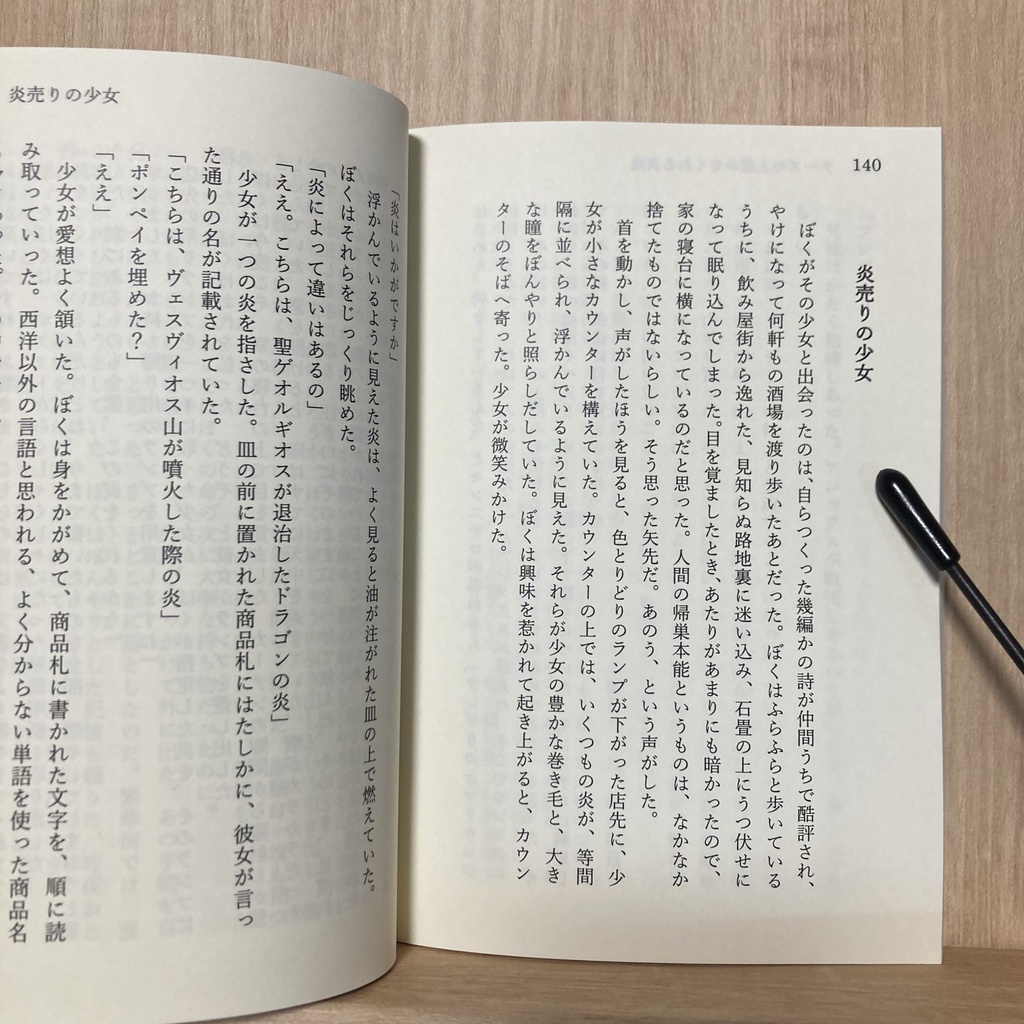 140
炎売りの少女
ぼくがその少女と出会ったのは、自らつくった幾編かの詩が仲間うちで酷評され、
やけになって何軒もの酒場を渡り歩いたあとだった。ぼくはふらふらと歩いている
うちに、飲み屋街から逸れた、見知らぬ路地裏に迷い込み、石畳の上にうつ伏せに
なって眠り込んでしまった。目を覚ましたとき、あたりがあまりにも暗かったので、
家の寝台に横になっているのだと思った。人間の帰巣本能というものは、なかなか
捨てたものではないらしい。そう思った矢先だ。あのう、という声がした。
首を動かし、声がしたほうを見ると、色とりどりのランプが下がった店先に、少
女が小さなカウンターを構えていた。カウンターの上では、いくつもの炎が、等間
隔に並べられ、浮かんでいるように見えた。それらが少女の豊かな巻き毛と、大き
な瞳をぼんやりと照らしだしていた。ぼくは興味を惹かれて起き上がると、カウン
ターのそばへ寄った。少女が微笑みかけた。
炎売りの少女
「炎はいかがですか」
浮かんでいるように見えた炎は、よく見ると油が注がれた皿の上で燃えていた。
ぼくはそれらをじっくり眺めた。
「炎によって違いはあるの」
「ええ。こちらは、聖ゲオルギオスが退治したドラゴンの炎」
少女が一つの炎を指さした。皿の前に置かれた商品札にはたしかに、彼女が言っ
た通りの名が記載されていた。
「こちらは、ヴェスヴィオス山が噴火した際の炎」
「ポンペイを埋めた？」
「ええ」
少女が愛想よく頷いた。ぼくは身をかがめて、商品札に書かれた文字を、順に読
み取っていった。西洋以外の言語と思われる、よく分からない単語を使った商品名